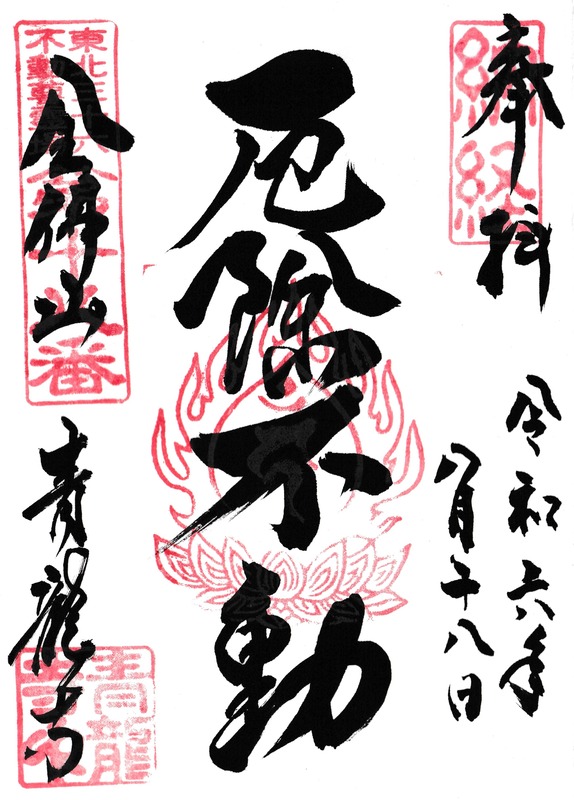 奉拝
令和六年
八月十八日
厄除不動
金佛山
青龍寺
納経
東北三十六
不動尊霊場
青龍